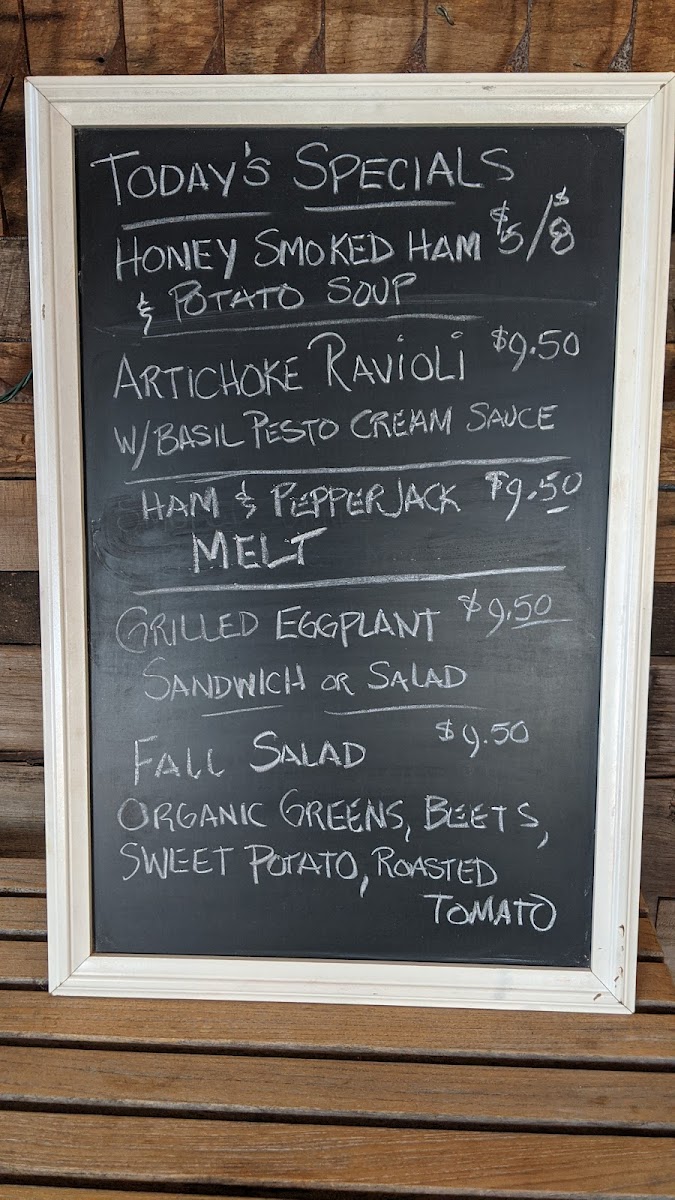 TODAY'S SPECIALS
HONEY SMOKED HAM $5/$8
& POTATO SOUP
ARTICHOKE RAVIOLI $9.50
W/BASIL PESTO CREAM SAUCE
HAM & PEPPERJACK $9.50
MELT
GRILLED EGGPLANT $9.50
SANDWICH OR SALAD
FALL SALAD $9.50
ORGANIC GREENS, BEETS,
SWEET POTATO, ROASTED
TOMATO